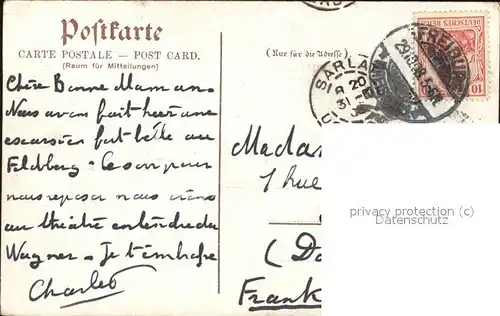 Postkarte
CARTE POSTALE — POST CARD.
[Raum für Mitteilungen]
(Nur für die Adresse).
DEUTSCHES REICH
10
FREIBURG
SARLA
20
31
Chère Bonne Maman
Nous avons fait hier une
excursion fort belle au
Feldberg - le soir pour
nous reposer nous irons
au théâtre entendre du
Wagner - Je t'embrasse
Charles
Madam
1 Rue
(Do
Frank
privacy protection (c)
Datenschutz